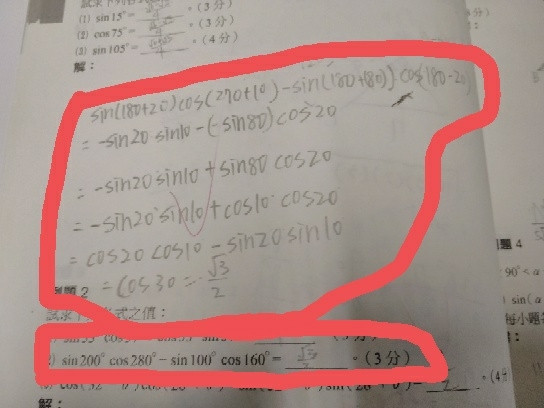 (1) sin 15° = 。(3 分)
(2) cos 75° = 。(3 分)
(3) sin 105° = 。(4 分)
解：
sin(180+20)cos(270+10)-sin(180+80))cos(180-20)
= -sin20 sin10-(-sin80)cos20
= -sin20 sin10 + sin80 cos20
= -sin20° sin10 + cos10° cos20
= cos20 cos10 - sin20 sin10
= cos30 = √3/2
題 2
式之值：
sin 200° cos 280° − sin 100° cos 160° = √3/2 。(3 分)
解：
題 4
90° < α
sin(α
每小題